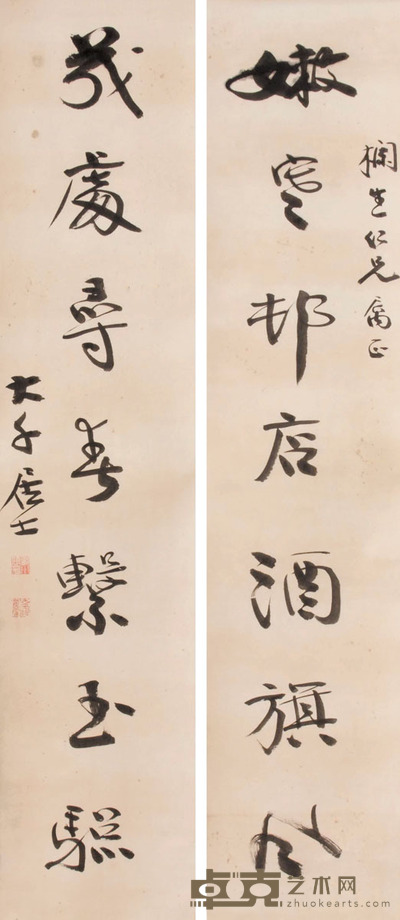 嫩寒邨店酒旗風
生仁兄属正
幾處尋春繫玉驄
大千居士
卓克艺术网
zhuokearts.com